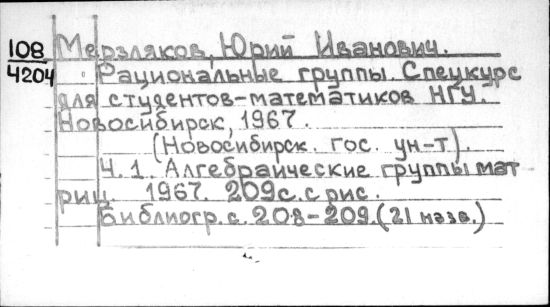 108
4204
Мерзляков, Юрий Иванович.
Рациональные группы. Спецкурс
для студентов-математиков НГУ.
Новосибирск, 1967.
(Новосибирск. гос. ун-т).
Ч. 1. Алгебраические группы мат
риц. 1967. 209с. с рис.
Библиогр. с. 208-209. (21 назв.)